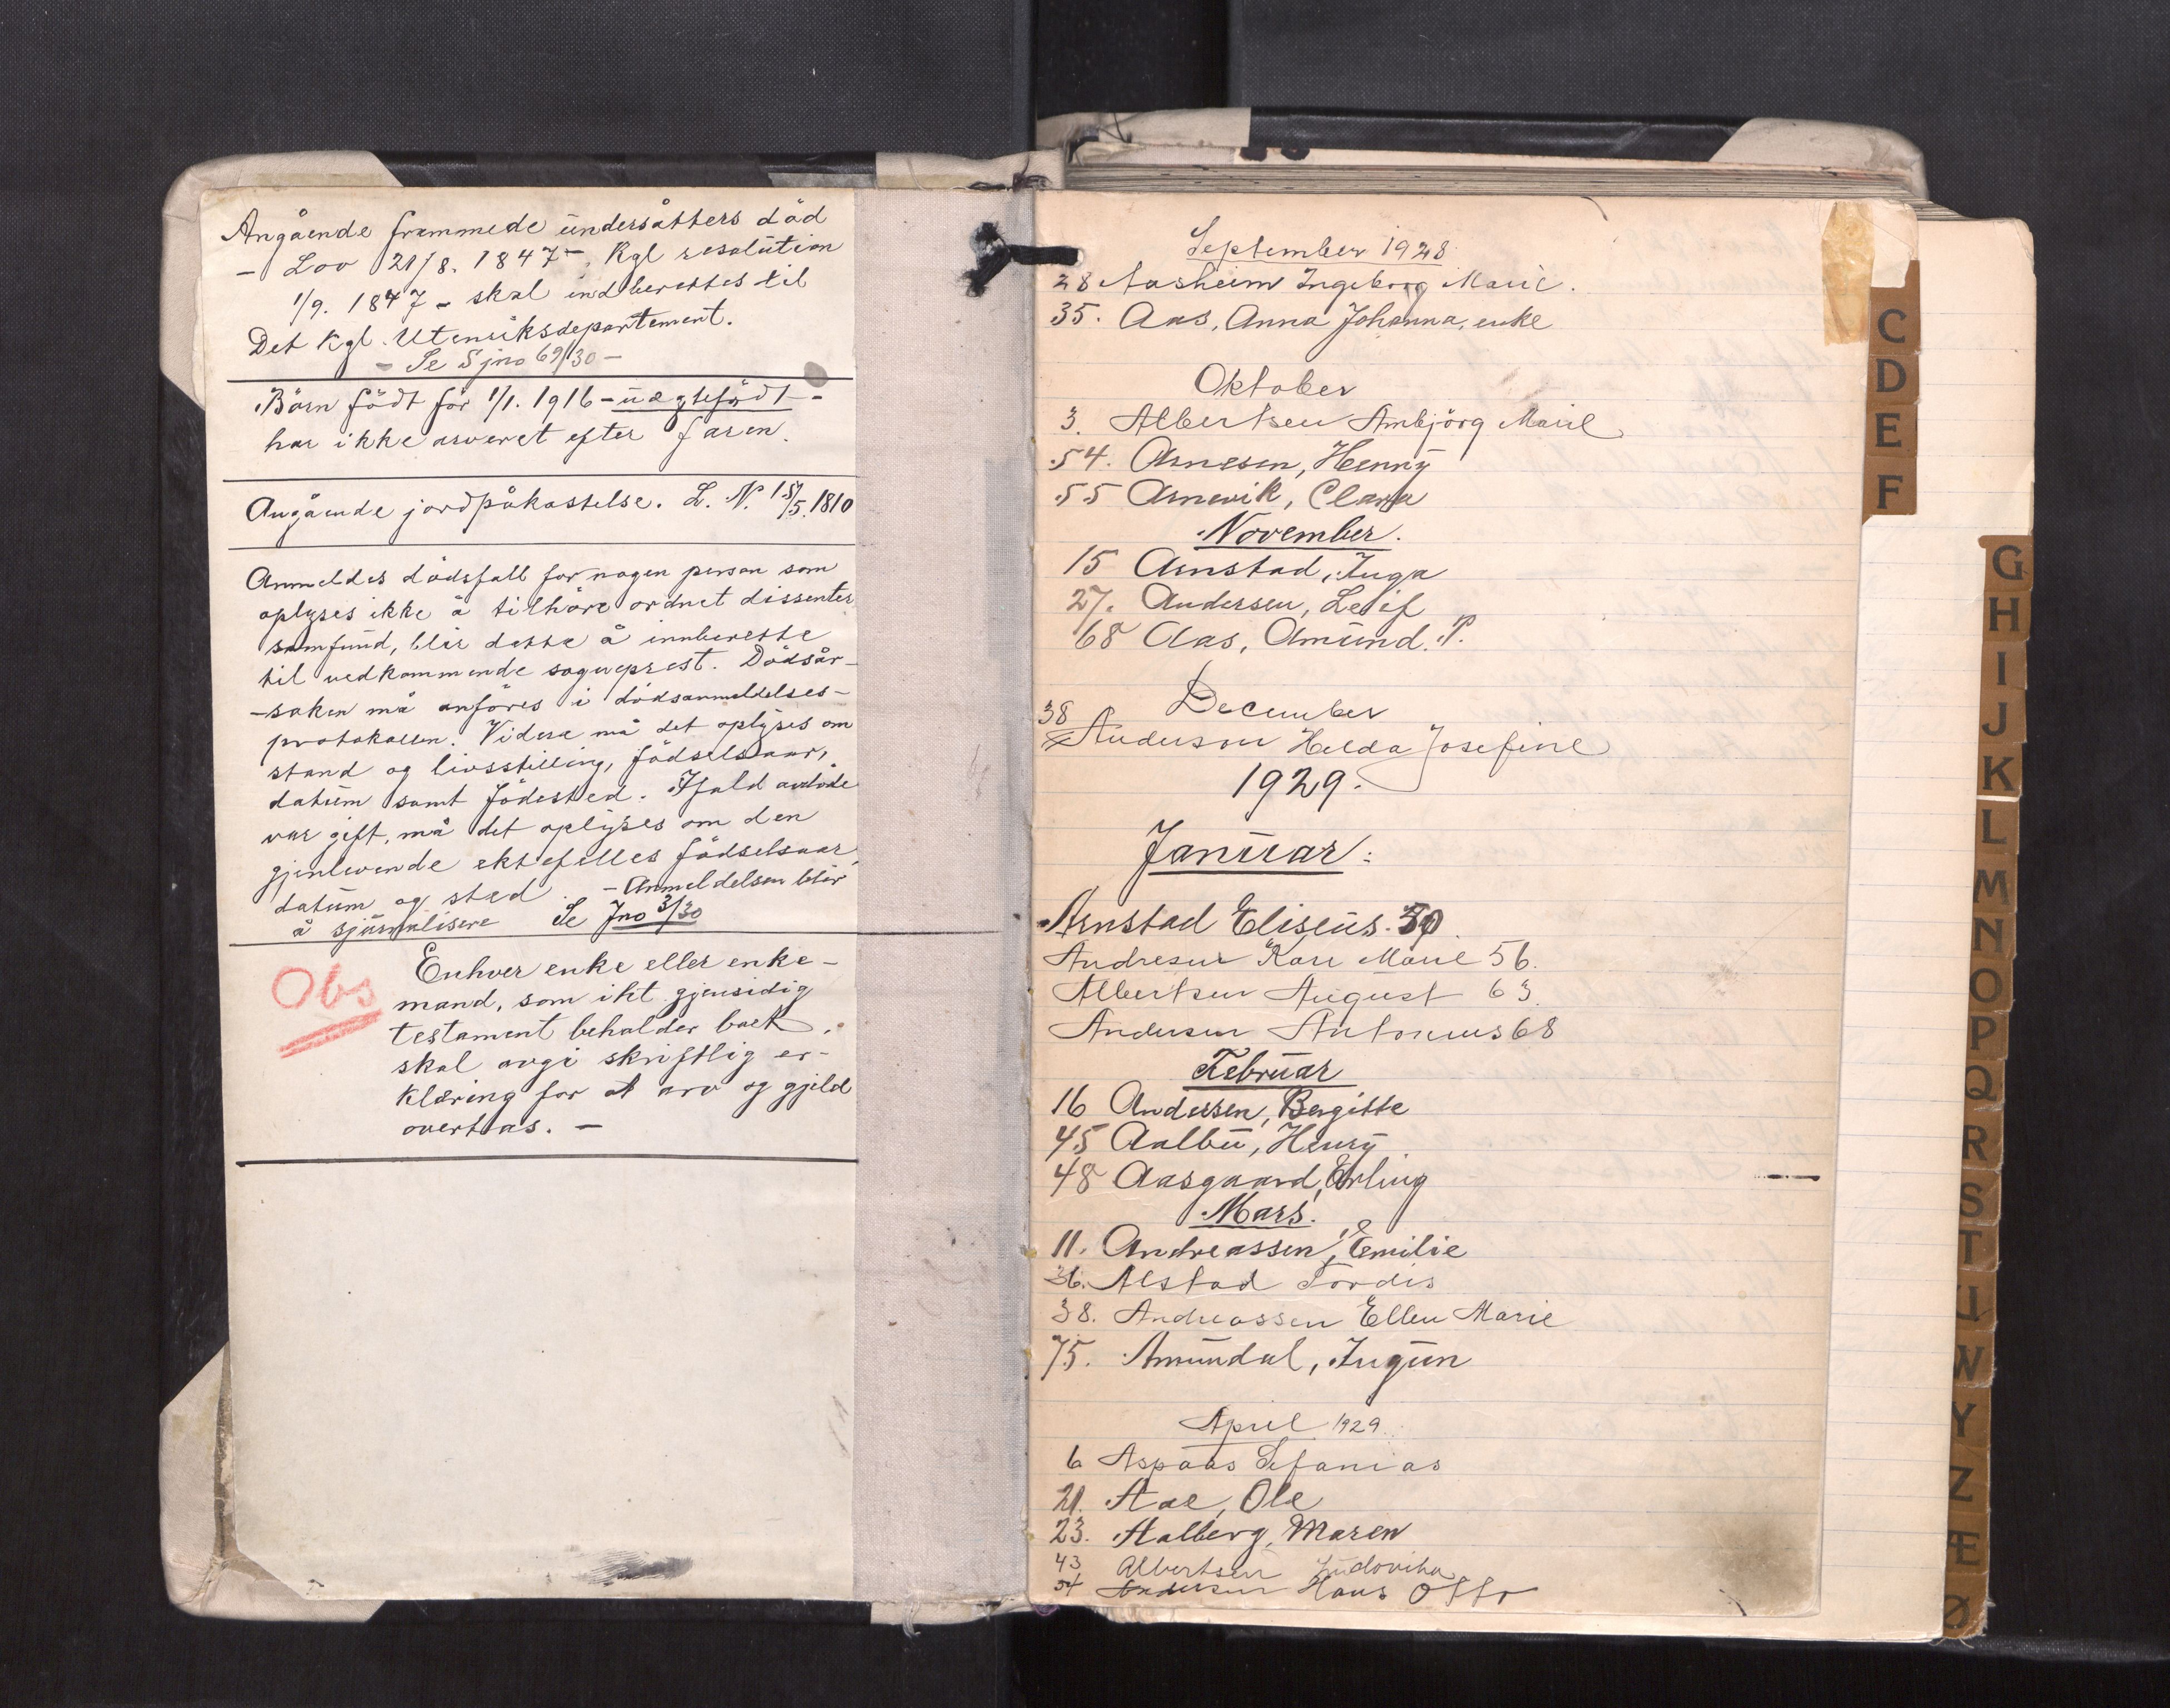 Angående fremmede undersåtters död
- Lov 21/8. 1847 -, Kgl resolution
1/9. 1847 - skal indberettes til
Det Kgl. Utenriksdepartement.
- Se Sjno 69/30 -
Börn födt för 1/1. 1916 - uægtefödt -
har ikke arveret efter faren.
Angående jordpåkastelse. L. N. 15/5. 1810
Anmeldes dödsfall for nogen person som
oplyses ikke å tilhöre ordnet dissenter
samfund, blir dette å innberette
til vedkommende sogneprest. Dödsår-
-saken må anföres i dödsanmeldelses-
protokollen. Videre må det oplyses om
stand og livsstilling, födselsaar,
datum samt födested. Ifald avdöde
var gift, må det oplyses om den
gjenlevende ektefelles födselsaar
datum og sted. - Anmeldelsen blir
å sjurnalisere Se Jno 3/30
Obs
Enhver enke eller enke-
mand, som iht gjensidig
testament beholder boet,
skal avgi skriftlig er-
klæring for at arv og gjeld
overtas. -
September 1928
28 Aasheim Ingeborg Marie.
35. Aas, Anna Johanna, enke
Oktober
3. Albertsen Ambjörg Marie
54. Arnesen, Henny
55 Arnevik, Clara
November.
15 Arnstad, Inga
27. Andersen, Leif
68 Aas, Amund. P.
December
38
Anderson Helda Josefine
1929.
Januar:
Arnstad Eliseus. 50.
Andresen Kari Marie 56.
Albertsen August 63.
Andersen Antonius 68
Februar
16 Andersen, Bergitte
45 Aalbu, Henry
48 Aasgaard, Erling
Mars.
11. Andreassen, Emilie
36. Alstad Tordis
38. Andreassen Ellen Marie
75. Amundal, Ingun
April 1929.
6 Aspaas Sefanias
21. Aae, Ole
23. Aalberg, Maren
43 Albertsen Ludovika
54 Andersen Hans Otto
C
D
E
F
G
H
I
J
K
L
M
N
O
P
Q
R
S
T
U
W
Y
Z
Æ
Ø